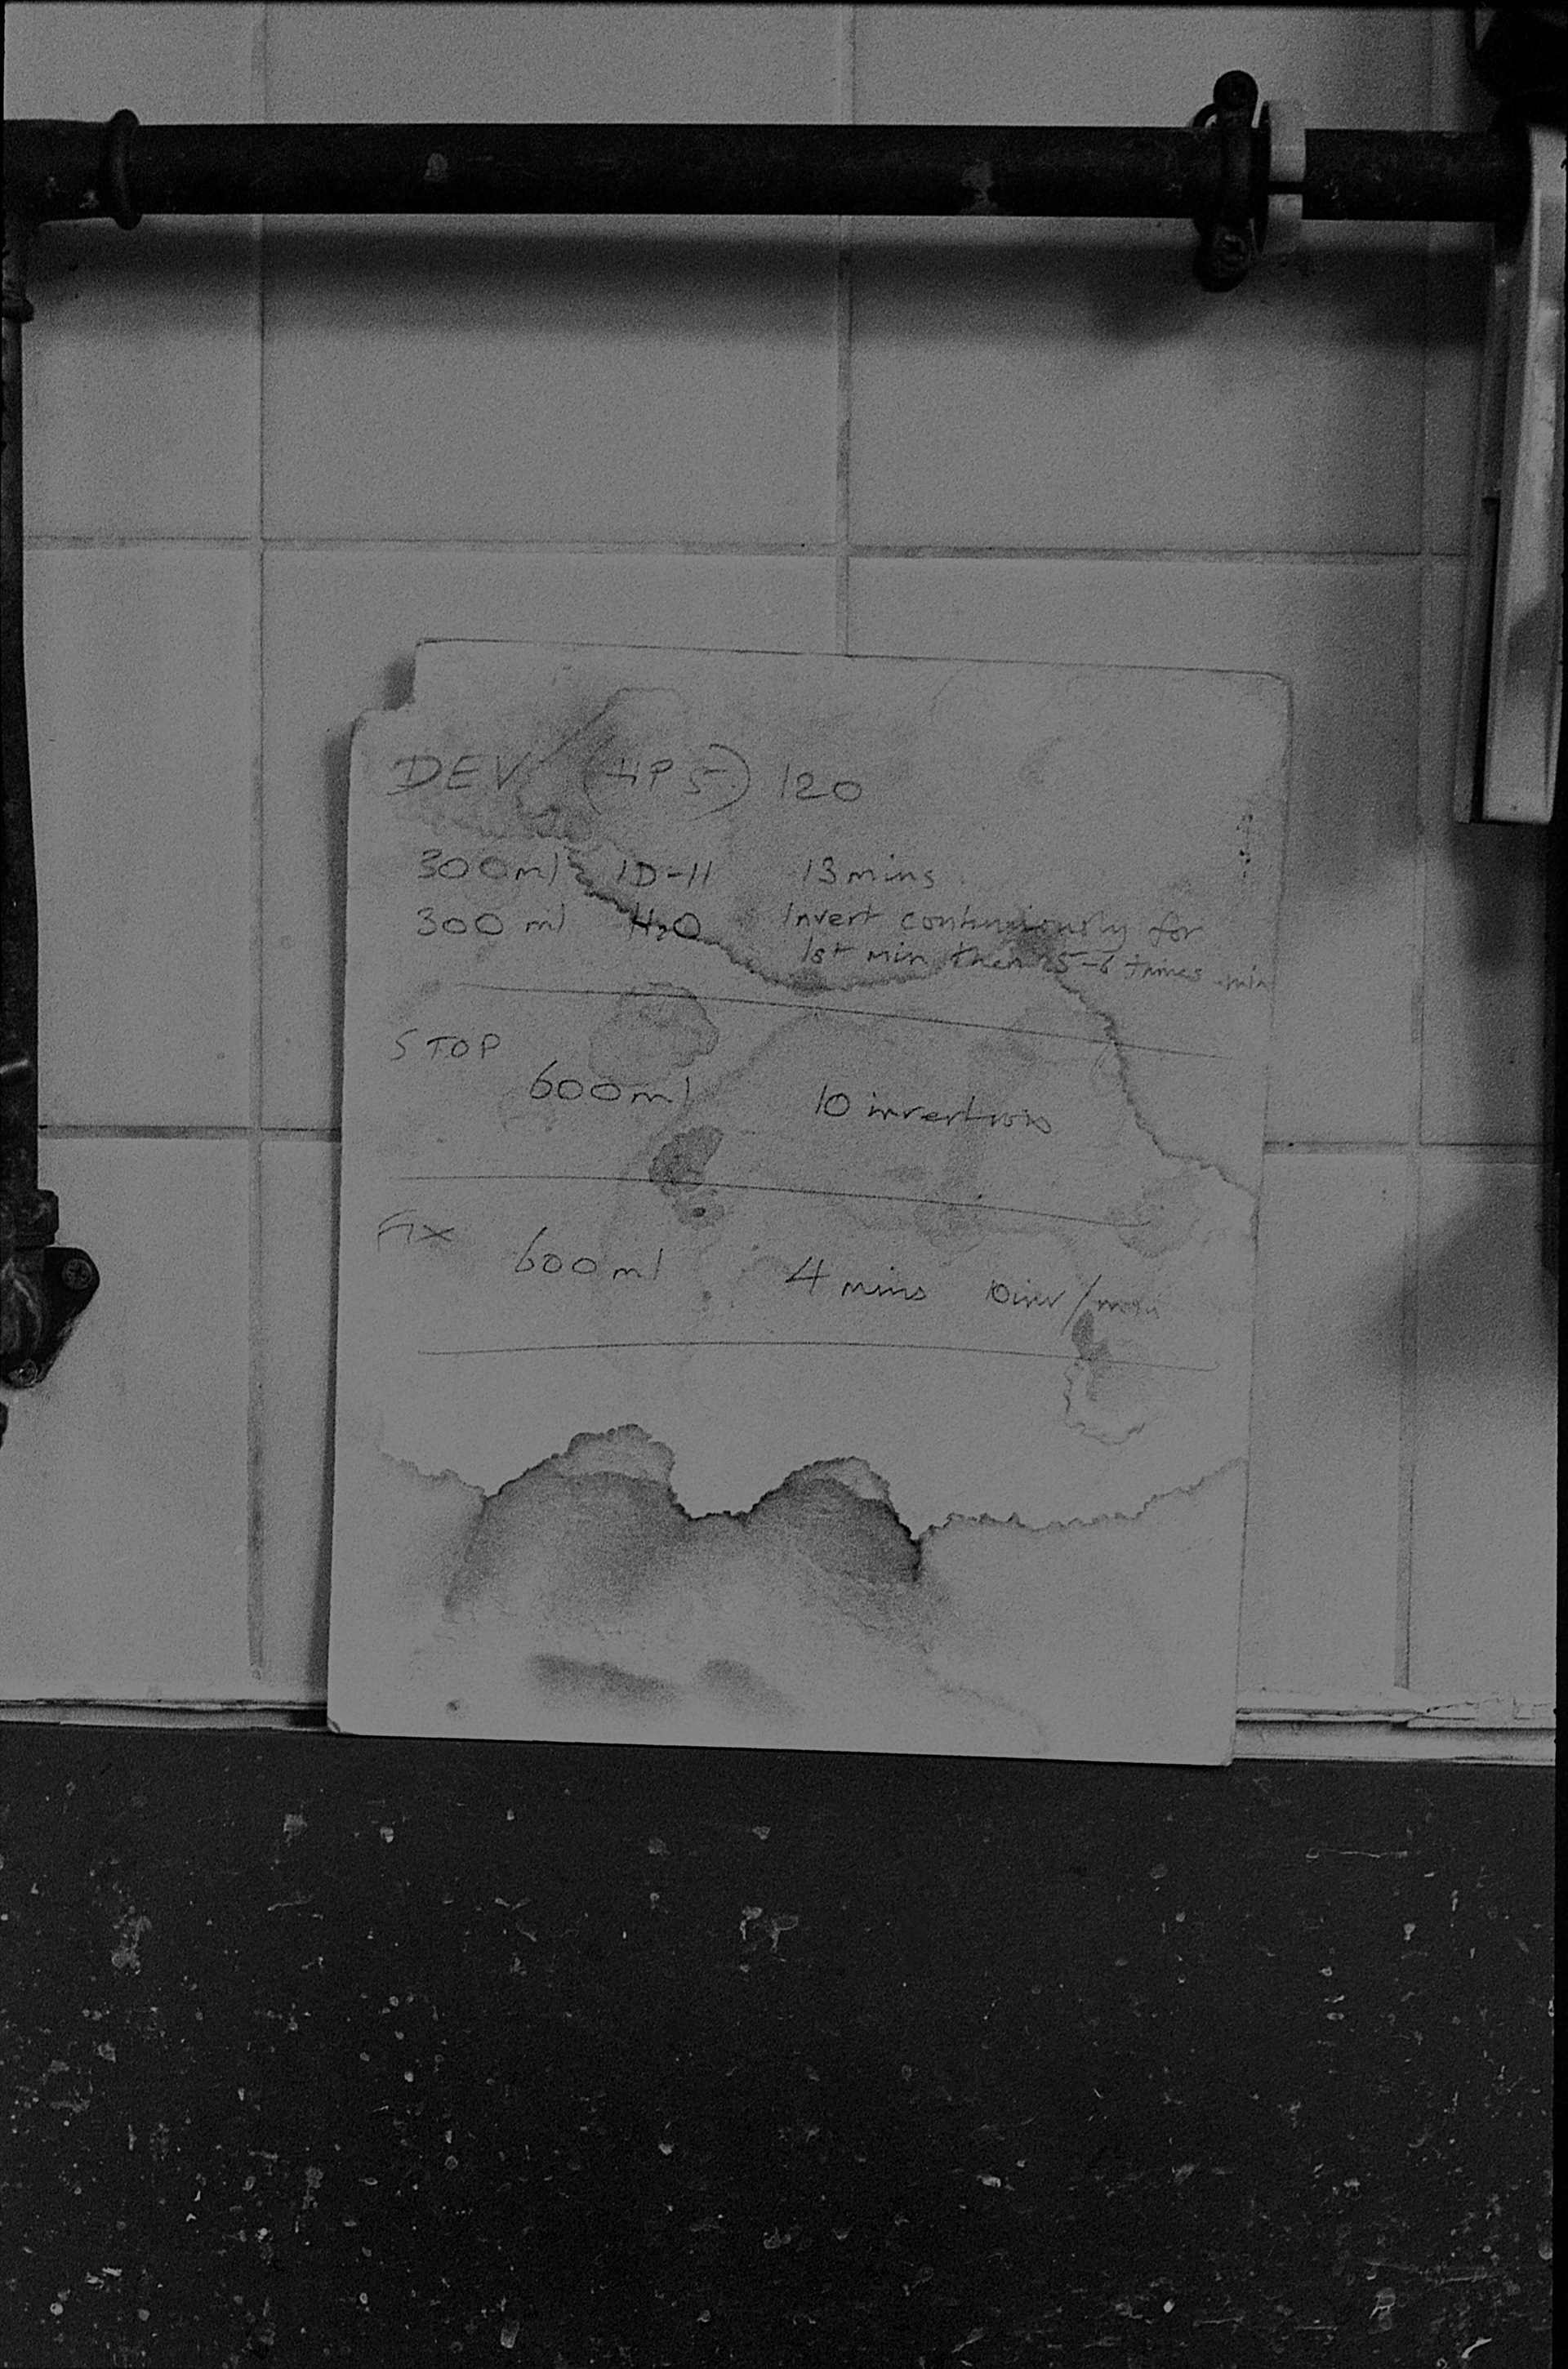 DEV (HP5) 120
300ml ID-11 13 mins
300 ml H₂O Invert continuously for
1st min then 5-6 times min
STOP
600ml 10 inversions
FIX
600ml 4 mins 10inv/min